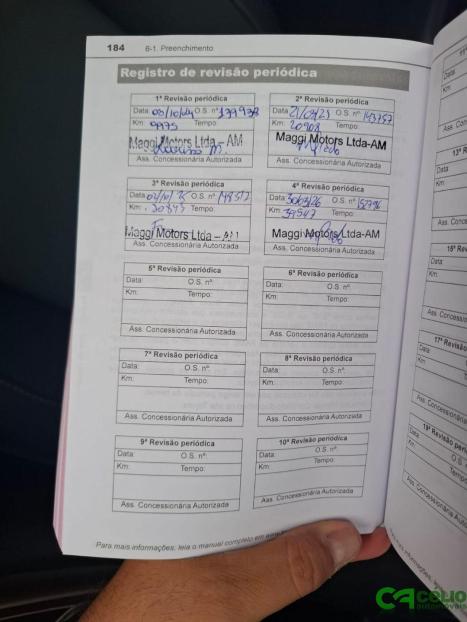 184 6-1. Preenchimento
Registro de revisão periódica
1ª Revisão periódica
Data: 03/10/24 O.S. nº: 137938
Km: 9995 Tempo:
Maggi Motors Ltda – AM
Ass. Concessionária Autorizada
2ª Revisão periódica
Data: O.S. nº: 143757
Km: 20908 Tempo:
Maggi Motors Ltda-AM
Ass. Concessionária Autorizada
3ª Revisão periódica
Data: O.S. nº:
Km: 30845 Tempo:
Maggi Motors Ltda – AM
Ass. Concessionária Autorizada
4ª Revisão periódica
Data: 30/03/26 O.S. nº:
Km: 39547 Tempo:
Maggi Motors Ltda-AM
Ass. Concessionária Autorizada
5ª Revisão periódica
Data: O.S. nº:
Km: Tempo:
Ass. Concessionária Autorizada
6ª Revisão periódica
Data: O.S. nº:
Km: Tempo:
Ass. Concessionária Autorizada
7ª Revisão periódica
Data: O.S. nº:
Km: Tempo:
Ass. Concessionária Autorizada
8ª Revisão periódica
Data: O.S. nº:
Km: Tempo:
Ass. Concessionária Autorizada
9ª Revisão periódica
Data: O.S. nº:
Km: Tempo:
Ass. Concessionária Autorizada
10ª Revisão periódica
Data: O.S. nº:
Km: Tempo:
Ass. Concessionária Autorizada
Para mais informações, leia o manual completo em
11ª
Data:
Km:
Ass. Conce
13ª
Data:
Km:
Ass. Conces
15ª Re
Data:
Km:
Ass. Concess
17ª Revisã
Data:
Km:
Ass. Concession
19ª Revisão
Data:
Km:
Ass. Concession
CÉLIO
automóveis